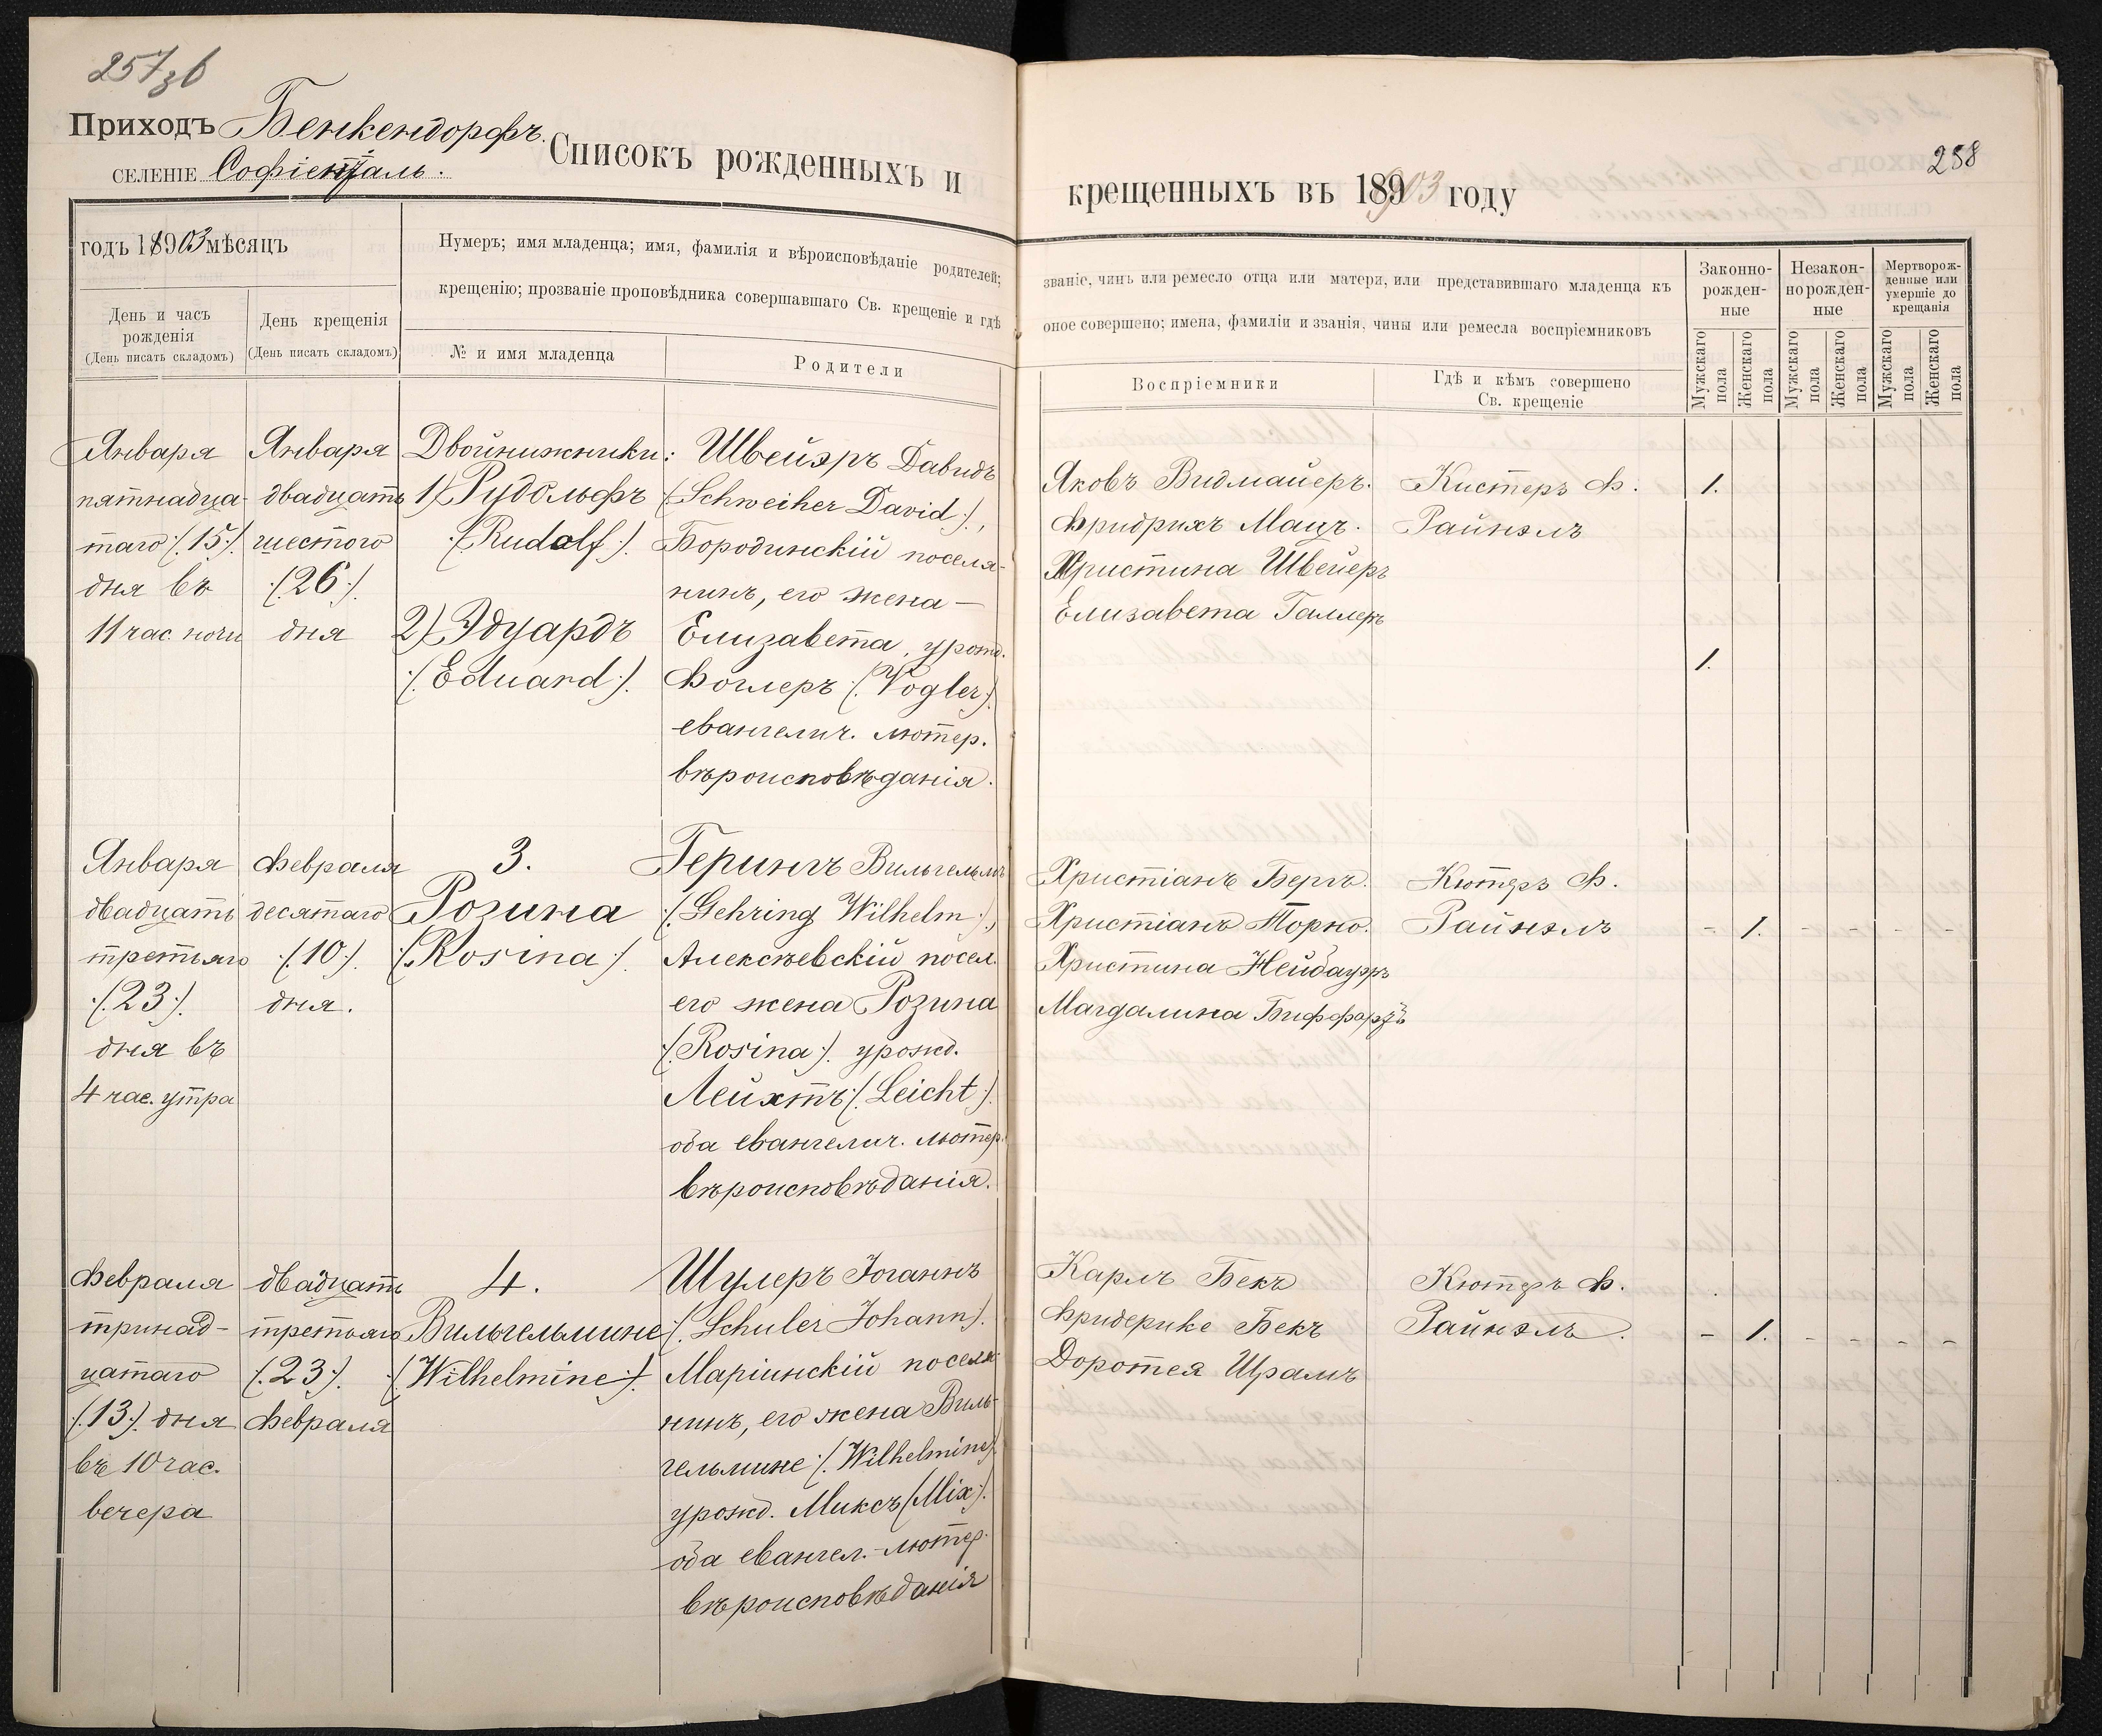 257 зб
Приходъ Бенкендорфъ.
селеніе Софіенталь.
Списокъ рожденныхъ и
годъ 18903 мѣсяцъ
День и часъ
рожденія
(День писать складомъ)
День крещенія
(День писать складомъ)
Нумеръ; имя младенца; имя, фамилія и вѣроисповѣданіе родителей;
крещенію; прозваніе проповѣдника совершавшаго Св. крещеніе и гдѣ
№ и имя младенца
Родители
Января
пятнадца-
таго (15).
дня въ
11 час. ночи
Января
двадцать
шестого
(26).
дня
Двойнижники:
1) Рудольфъ
(Rudolf).
2) Эдуардъ
(Eduard).
Швейэръ Давидъ
(Schweiher David),
Бородинскій поселя-
нинъ, его жена —
Елизавета, урожд.
Фоглеръ (Vogler)
евангелич. лютер.
вѣроисповѣданія.
Января
двадцать
третьяго
(23).
дня въ
4 час. утра
Февраля
десятаго
(10).
дня.
3.
Розина
(Rosina).
Герингъ Вильгельмъ
(Gehring Wilhelm),
Алексѣевскій посел.
его жена Розина
(Rosina). урожд.
Лейхтъ (Leicht)
оба евангелич. лютер.
вѣроисповѣданія.
Февраля
тринад-
цатаго
(13). дня
въ 10 час.
вечера
двадцать
третьяго
(23).
Февраля
4.
Вильгельмине
(Wilhelmine).
Шулеръ Іоганнъ
(Schuler Johann).
Маріинскій поселя-
нинъ, его жена Виль-
гельмине (Wilhelmine)
урожд. Миксъ (Mix).
оба евангел.-лютер.
вѣроисповѣданія
258
крещенныхъ въ 189903 году
званіе, чинъ или ремесло отца или матери, или представившаго младенца къ
оное совершено; имена, фамиліи и званія, чины или ремесла воспріемниковъ
Воспріемники
Гдѣ и кѣмъ совершено
Св. крещеніе
Законно-
рожден-
ные
Незакон-
норожден-
ные
Мертворож-
денные или
умершіе до
крещанія
Мужскаго
пола
Женскаго
пола
Мужскаго
пола
Женскаго
пола
Мужскаго
пола
Женскаго
пола
Яковъ Видмайеръ.
Фридрихъ Мацъ.
Христина Швейеръ
Елизавета Галлеръ
Кистеръ Ф.
Райнэлъ
1.
1.
Христіанъ Бергъ.
Христіанъ Торно.
Христина Нейбауэръ
Магдалина Биффартъ
Кютеръ Ф.
Райнэлъ
- 1. - - - -
Карлъ Бекъ
Фридерике Бекъ
Доротея Шрамъ
Кютеръ Ф.
Райнэлъ.
- 1. - - - -